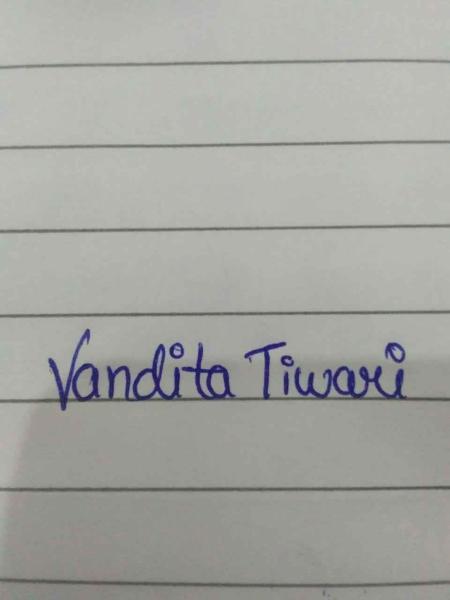 Vandita Tiwari